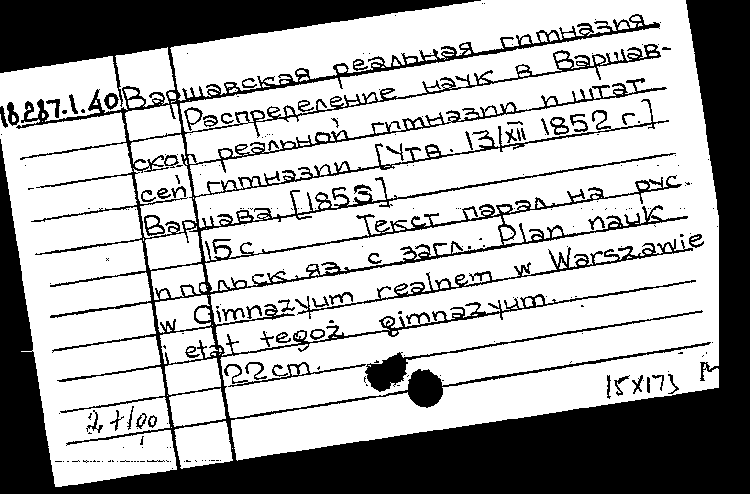 18.287.1.40 Варшавская реальная гимназия.
Распределение наук в Варшав-
ской реальной гимназии и штат
сей гимназии. [Утв. 13/XII 1852 г.]
Варшава, [1853]
15 с. Текст парал. на рус.
и польск. яз. с загл.: Plan nauk
w Gimnazyum realnem w Warszawie
i etat tegoż gimnazyum.
22 cm.
15 XI 73